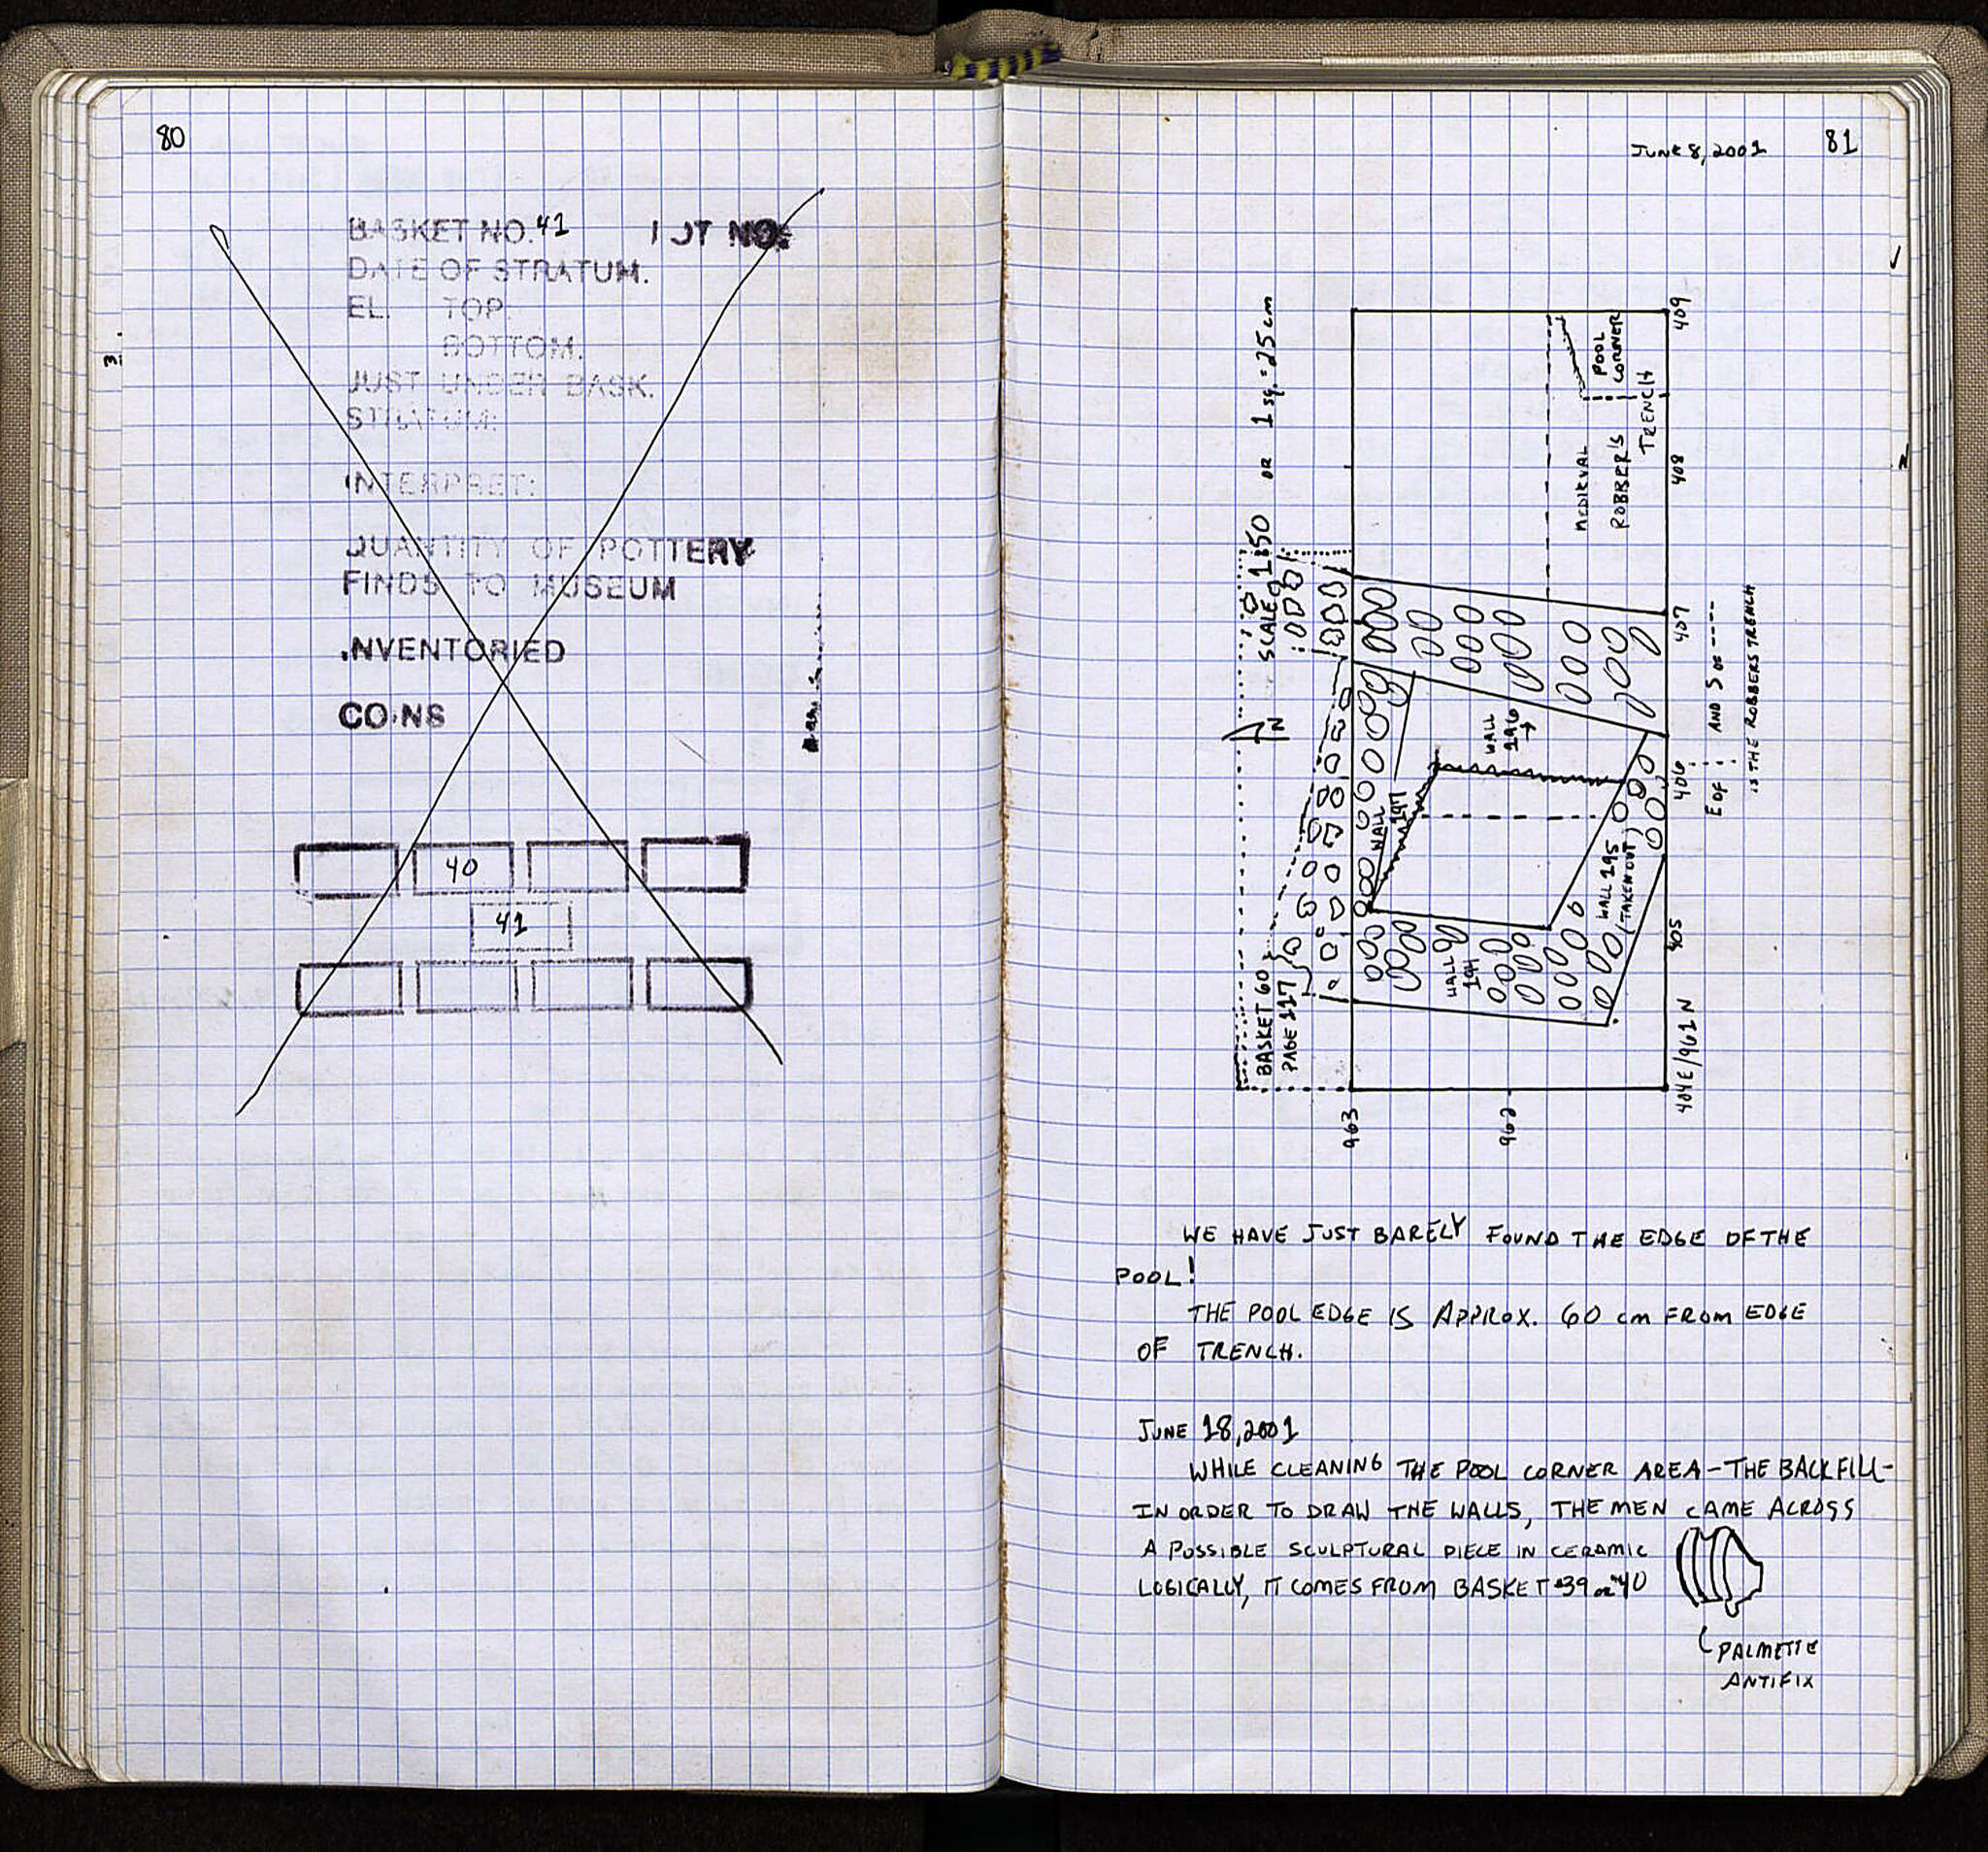 80
BASKET NO. 41 LOT NO.
DATE OF STRATUM.
EL. TOP.
BOTTOM.
JUST UNDER BASK.
STRATUM:
INTERPRET:
QUANTITY OF POTTERY
FINDS TO MUSEUM
INVENTORIED
COINS
40
41
JUNE 8, 2001 81
SCALE 1:50 OR 1 sq. = 25 cm
N
BASKET 60
PAGE 117
409
408
407
406
405
404E/961N
962
963
POOL
CORNER
MEDIEVAL
ROBBER'S
TRENCH
WALL
196
WALL
197
WALL
194
WALL 195
(TAKEN OUT)
E OF AND S OF ----
IS THE ROBBERS TRENCH
WE HAVE JUST BARELY FOUND THE EDGE OF THE
POOL!
THE POOL EDGE IS APPROX. 60 cm FROM EDGE
OF TRENCH.
JUNE 18, 2001
WHILE CLEANING THE POOL CORNER AREA - THE BACKFILL -
IN ORDER TO DRAW THE WALLS, THE MEN CAME ACROSS
A POSSIBLE SCULPTURAL PIECE IN CERAMIC
LOGICALLY, IT COMES FROM BASKET #39 or #40
PALMETTE
ANTIFIX